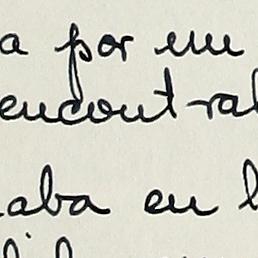 a por un
encontral
aba en l